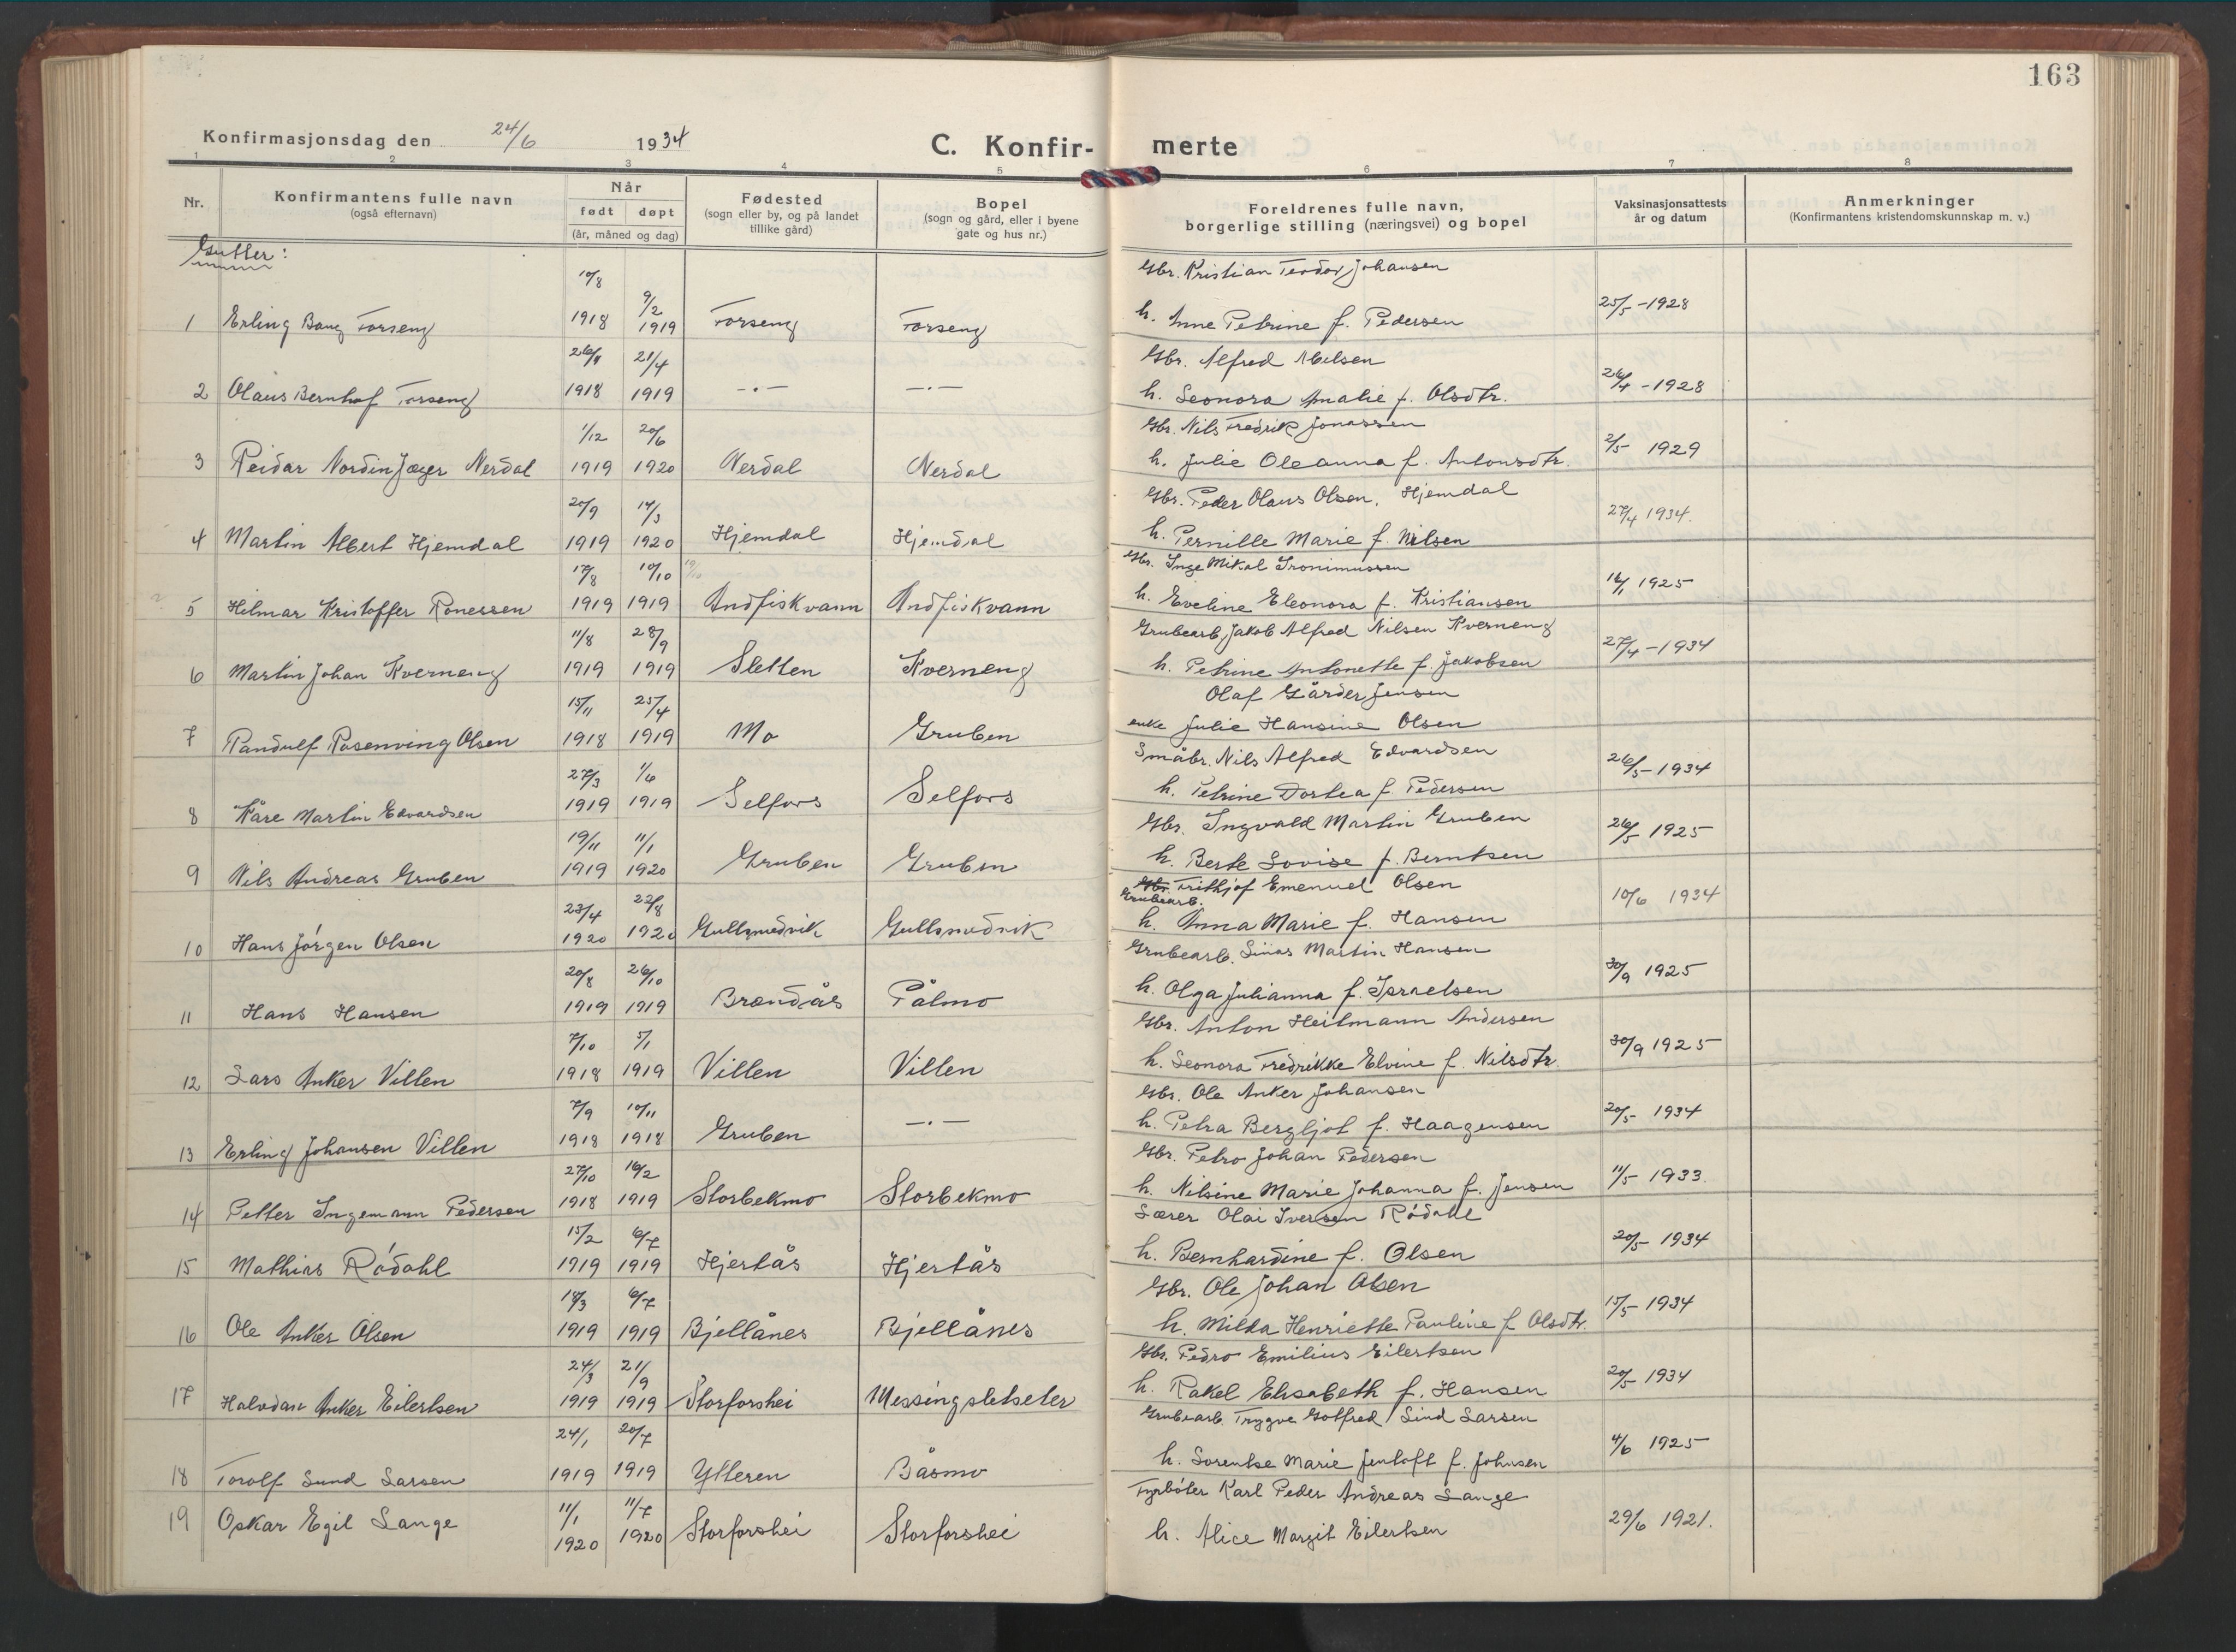 163
Konfirmasjonsdag den 24/6 1934 C. Konfir- merte
1 2 3 4 5 6 7 8
Nr. Konfirmantens fulle navn (også efternavn) Når født døpt (år, måned og dag) Fødested (sogn eller by, og på landet tillike gård) Bopel (sogn og gård, eller i byene gate og hus nr.) Foreldrenes fulle navn, borgerlige stilling (næringsvei) og bopel Vaksinasjonsattests år og datum Anmerkninger (Konfirmantens kristendomskunnskap m. v.)
Gutter:
1 Erling Bang Forseng 10/8 1918 9/2 1919 Forseng Forseng Gbr. Kristian Teodor Johansen
h. Anne Petrine f. Pedersen 25/5-1928
2 Olaus Bernhof Forseng 26/11 1918 21/4 1919 -.- -.- Gbr. Alfred Abelsen
h. Leonora Amalie f. Olsdtr. 26/4-1928
3 Reidar Nordin Jæger Nerdal 1/12 1919 20/6 1920 Nerdal Nerdal Gbr. Nils Fredrik Jonassen
h. Julie Oleanna f. Antonsdtr. 2/5 1929
4 Martin Albert Hjemdal 20/9 1919 14/3 1920 Hjemdal Hjemdal Gbr. Peder Olaus Olsen, Hjemdal
h. Pernille Marie f. Nilsen 27/4 1934.
5 Hilmar Kristoffer Ronessen 17/8 1919 10/10 1919 Andfiskvann Andfiskvann Gbr. Inge Mikal Ironimussen
h. Eveline Eleonora f. Kristiansen 16/1 1925
6 Martin Johan Kverneng 11/8 1919 28/9 1919 Sletten Kverneng Grubearb. Jakob Alfred Nilsen Kverneng
h. Petrine Antonette f. Jakobsen 27/4-1934
7 Randulf Rosenving Olsen 15/11 1918 25/4 1919 Mo Gruben Olaf Gårder Jensen
enke Julie Hansine Olsen
8 Kåre Martin Edvardsen 27/3 1919 1/6 1919 Selfors Selfors Småbr. Nils Alfred Edvardsen
h. Petrine Dortea f. Pedersen 26/5-1934
9 Nils Andreas Gruben 19/11 1919 11/1 1920 Gruben Gruben Gbr. Ingvald Martin Gruben
h. Berte Lovise f. Berntsen 26/5 1925
10 Hans Jörgen Olsen 23/4 1920 22/8 1920 Gullsmedvik Gullsmedvik Gbr. Frithjof Emanuel Olsen
Grubearb.
h. Anna Marie f. Hansen 10/6 1934
11 Hans Hansen 20/8 1919 26/10 1919 Brandås Pålmo Grubearb. Martin Hansen
h. Olga Julianna f. Israelsen 30/9 1925
12 Lars Anker Villen 7/10 1918 5/1 1919 Villen Villen Gbr. Anton Heitmann Andersen
h. Leonora Fredrikke Elvine f. Nilsdtr. 30/9 1925
13 Erling Johansen Villen 7/9 1918 10/11 1918 Gruben -.- Gbr. Ole Anker Johansen
h. Petra Bergljot f. Haagensen 20/5 1934
14 Petter Ingemann Pedersen 27/10 1918 16/2 1919 Storbekmo Storbekmo Gbr. Petro Johan Pedersen
h. Nilsine Marie Johanna f. Jensen 11/5 1933.
15 Mathias Rödahl 15/2 1919 6/7 1919 Hjertås Hjertås Lærer Olai Iversen Rödahl
h. Bernhardine f. Olsen 20/5 1934
16 Ole Anker Olsen 18/3 1919 6/7 1919 Bjellånes Bjellånes Gbr. Ole Johan Olsen
h. Milda Henriette Pauline f Olsdtr. 15/5-1934
17 Halvdan Anker Eilertsen 24/3 1919 21/9 1919 Storforshei Messingsletseter Gbr. Pedro Emilius Eilertsen
h. Rakel Elisabeth f. Hansen 20/5 1934
18 Torolf Lund Larsen 24/1 1919 20/7 1919 Ytteren Båsmo Grubearb. Trygve Gotfred Lind Larsen
h. Sorentse Marie Jentoft f. Johnsen 4/6 1925
19 Oskar Egil Lange 11/1 1920 11/7 1920 Storforshei Storforshei Fyrböter Karl Peder Andreas Lange
h. Alice Margit Eilertsen 29/6 1921.